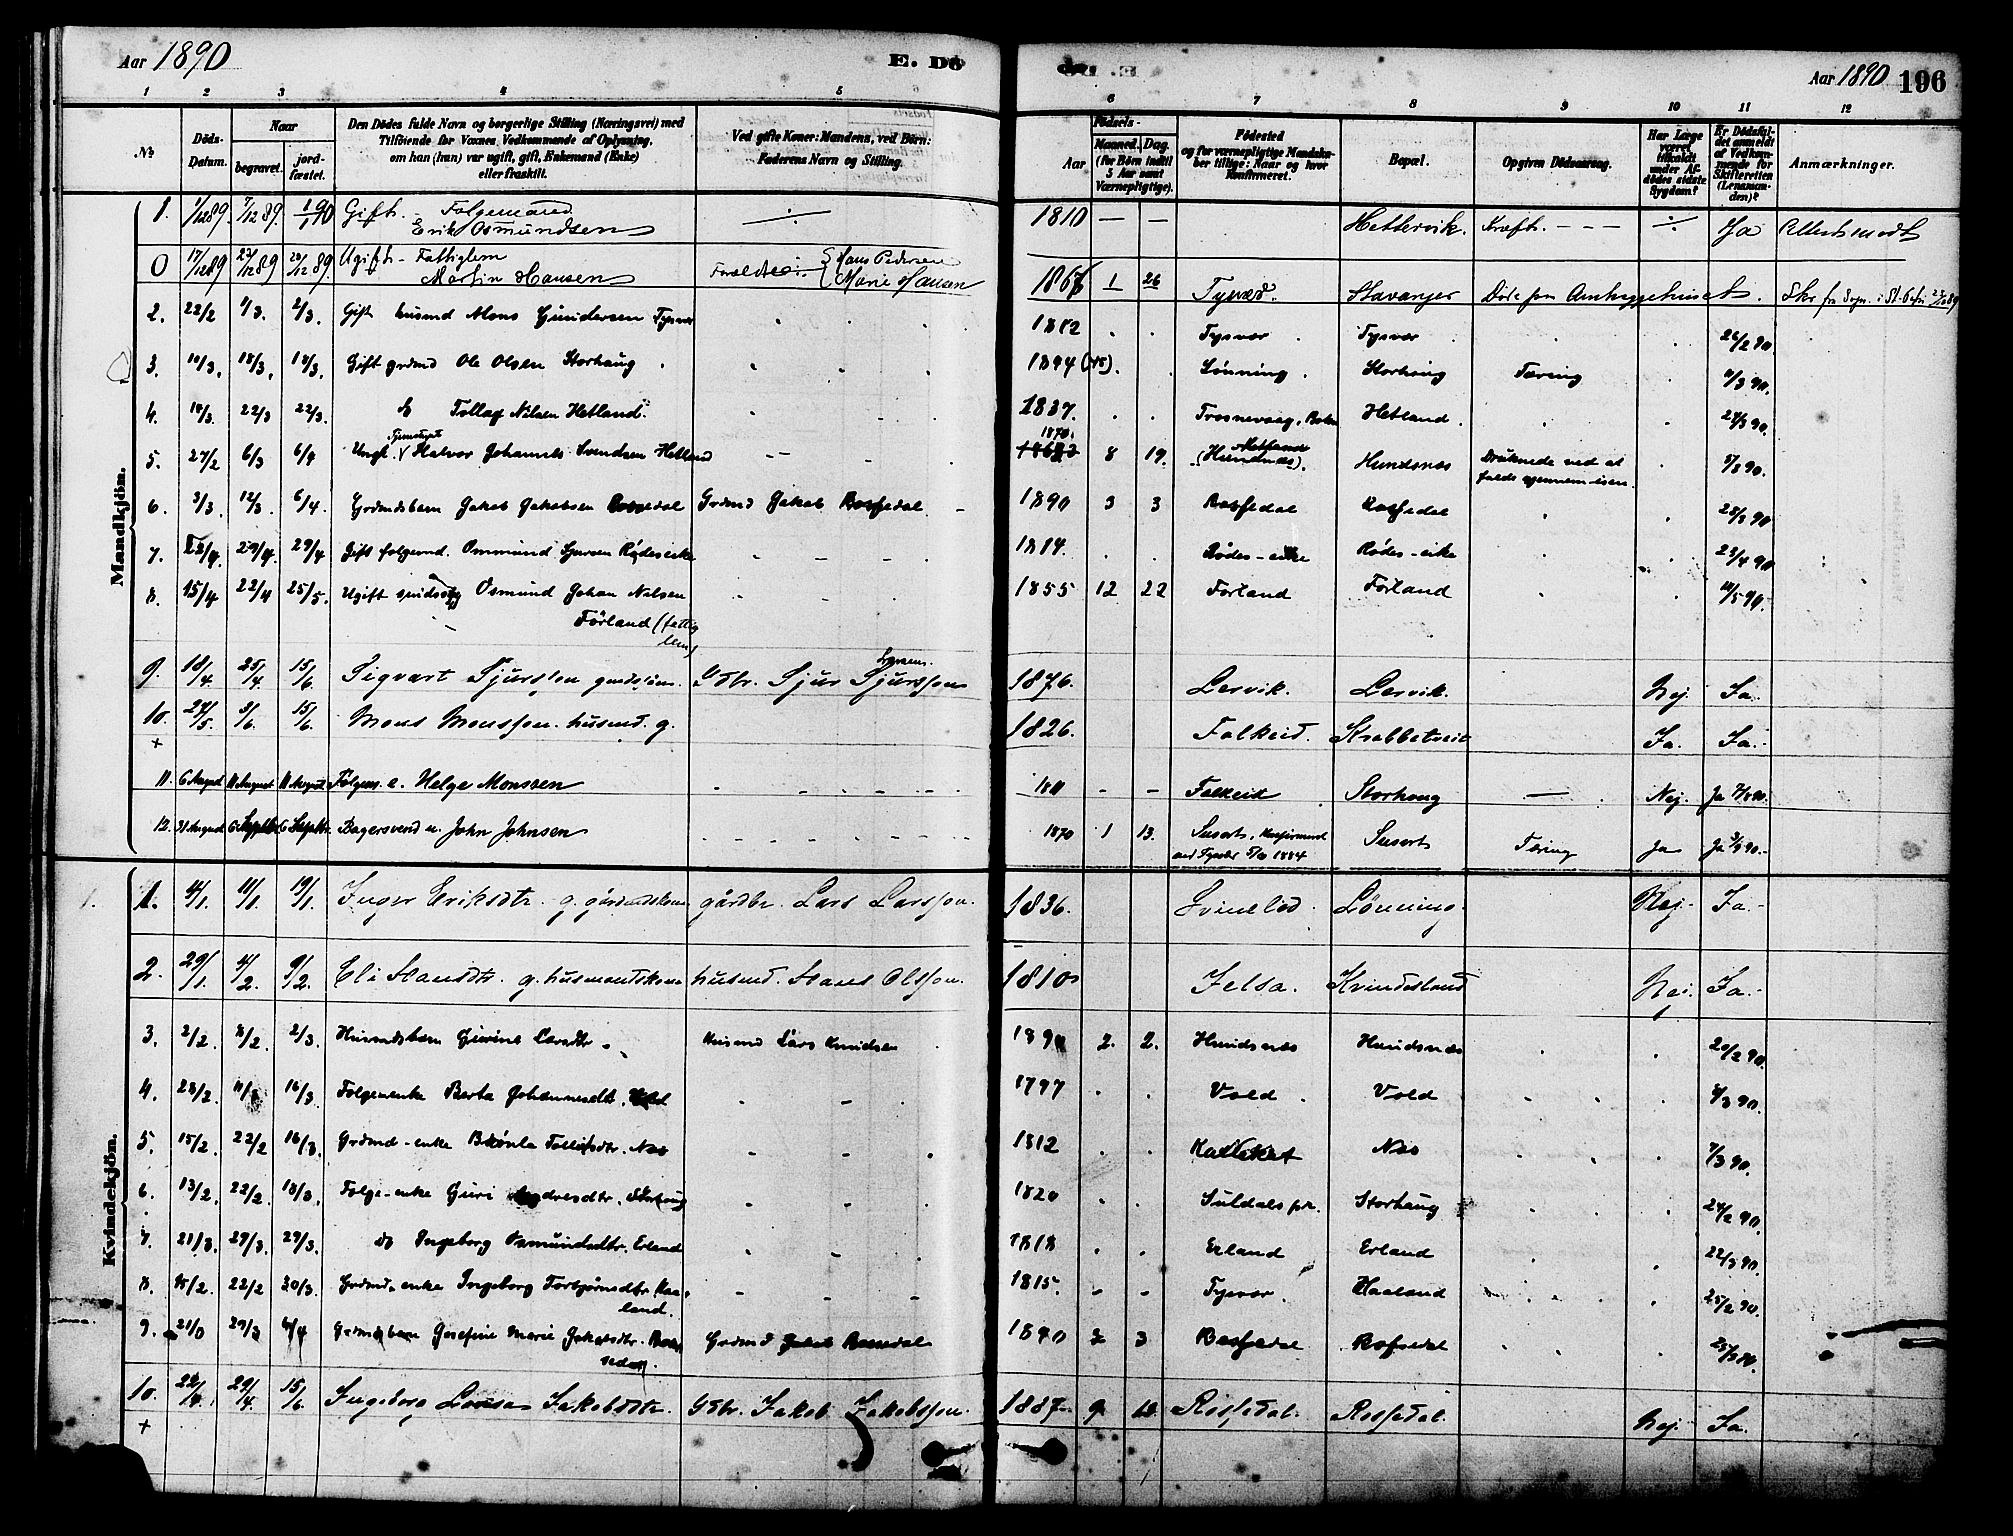 Aar 1890
E. Dö
de.
Aar 1890 196
1 2 3 4 5 6 7 8 9 10 11 12
No
Döds-Datum.
Naar
begravet.
jord-fæstet.
Den Dödes fulde Navn og borgerlige Stilling (Næringsvei) med
Tilföiende for Voxnes Vedkommende af Oplysning,
om han (hun) var ugift, gift, Enkemand (Enke)
eller fraskilt.
Ved gifte Koner: Mandens, ved Börn:
Faderens Navn og Stilling.
Födsels-
Aar
Maaned. Dag.
(for Börn indtil
5 Aar samt
Værnepligtige).
Födested
og for værnepligtige Mandskaber tillige: Naar og hvor
Konfirmeret.
Bopæl.
Opgiven Dödsaarsag.
Har Læge
været
tilkaldt
under Afdödes sidste
Sygdom?
Er Dödsfaldet anmeldt
af Vedkommende for
Skifteretten
(Lensmanden)?
Anmærkninger.
Mandkjön.
1. 1/12 89. 7/12 89. 1/1 90 Gift. - Folgemand
Erik Osmundsen ÷ 1810 — — Hettervik. Kræft. - - - ÷ Ja Attest modt
0 17/12 89 23/12 89 29/12 89. Ugift - Fattiglem
Martin Hansen Forældre: Hans Pedersen
Marie Hansen 1867 1 26 Tysvær. Stavanger Døde paa Amtssygehuset.
2. 22/2 1/3. 2/3. Gift husmd Mons Gundersen Tysvær 1812 Tysvær Tysvær 26/2 90.
3. 10/3. 18/3. 18/3. Gift grdmd Ole Olsen Storhaug 1844 (45) Lönning Storhaug Tæring 11/3 90.
4. 18/3. 22/3 22/3. do Tollag Nilsen Hetland. 1837. Hetland. 24/3 90.
5. 27/2 6/3 6/4 Ungk. Tjenestegut Halvor Johannes Svendsen Hetland — 1870. 8 19. (Hundsnæs). Hundsnæs Druknede ved at
falde gjennem isen. 5/3 90.
6. 3/3. 12/3. 6/4. Grdmdsbarn Jakob Jakobsen Rossedal Grdmd Jakob Rossedal 1890 3 3 Rossedal Rossedal 28/3 90
7. 23/4. 29/4. 29/4 Gift folgemd. Ommund Rødes-eike 1814. Rødes-eike Rødes-eike 23/4 90
8. 15/4 22/4 25/5. Ugift Osmund Johan Nilsen
Förland (fattig
lem) 1855 12 22 Förland Förland 14/5 90.
9. 18/4. 25/4. 15/6. Sigvart Sjurssen Gdbr. Sjur Sjurssen 1876. Lervik. Lervik. Nej. Ja.
10. 27/5. 3/6. 15/6. Mons Monssen. husmd. g. 1826. Falkeid. Krabbetveit Ja. Ja.
+
11. 6 August 11 August 11 August Følgem. e. Helge Monssen 1811 - - Falkeid Storhaug — Nej. Ja 7/8 90.
12. 31 August 6 Septbr 6 Septbr. Bagersvend u. John Johnsen 1870 1 13. Susort, Konfirmeret
ved Tysvær 5/10 1884 Susort Tæring Ja Ja 3/9 90.
Kvindekjön.
1. 4/1. 11/1. 19/1. Inger Eriksdtr. g. gårdmdskone gårdbr. Lars Larssen. 1836. Svinelid Lönning. Nej. Ja.
2. 29/1. 4/2. 9/2. Eli Hansdtr. g. husmandskone husmd. Hans Olssen. 1810 Jelsa. Kvindesland Nej. Ja.
3. 2/2. 8/2. 2/3. Husmdsbarn Gurine Larsdtr. Husmd Lars Knudsen 1890 2. 2. Hundsnæs Hundsnæs 20/2 90.
4. 23/2. 11/3 16/3. Folgeenke Berta Johannesdtr. Vold 1797 Vold Vold 6/3 90.
5. 15/2. 22/2 16/3. Grdmd-enke Næs 1812 Næs 7/3 90.
6. 13/2. 22/2. 18/3. Folge-enke Guri Andresdtr. Storhaug 1820 Suldals pr. Storhaug 24/2 90.
7. 21/3. 29/3. 29/3. do Ingeborg Osmundsdtr. Erland 1818 Erland Erland 22/3 90.
8. 15/2. 22/2 30/3. Grdmd. enke Ingeborg Torbjörnsdtr. Haaland. 1815. Tysvær. Haaland 25/2 90.
9. 29/3 6/4 Grdmdsbarn Josefine Marie Jakobsdtr. Rossedal. Grdmd Jakob Rossedal 1890 3 3 Rossedal Rossedal
10. 22/4. 29/4. 15/6. Ingeborg Lovisa Jakobsdtr. Gdbr. Jakob Jakobssen. 1887 9. Rossedal. Rossedal. Nej. Ja.
+